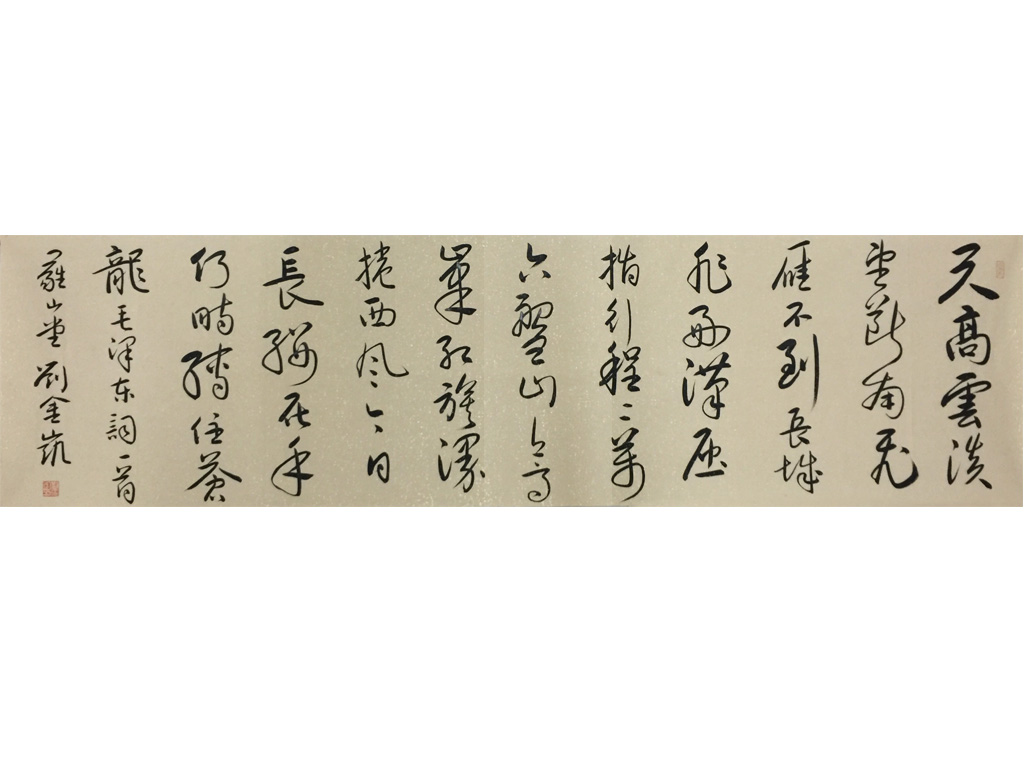 天高雲淡
望斷南飛
雁不到長城
非好漢屈
指行程二萬
六盤山上高
峯紅旗漫
捲西风今日
長纓在手
何時縛住蒼
龍毛澤东詞一首
羅山堂劉金凱